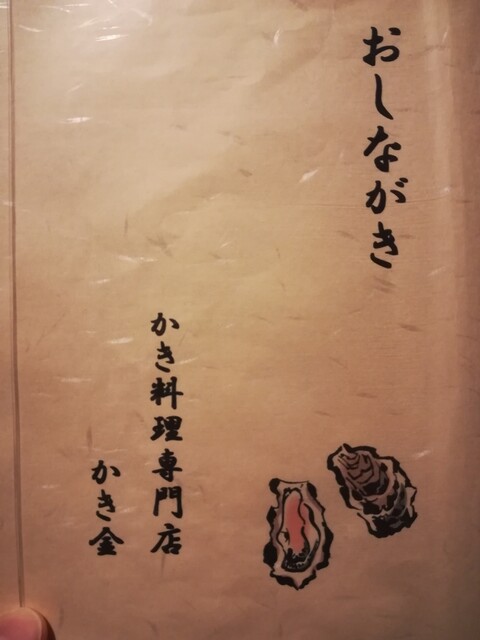 おしながき
かき料理専門店
かき金